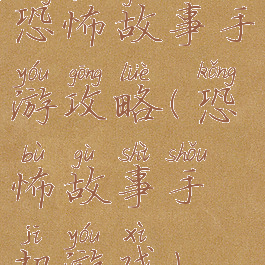 恐怖故事手
yóu gōng lüè kǒng
游攻略(恐
bù gù shì shǒu
怖故事手
jī yóu xì
机游戏)